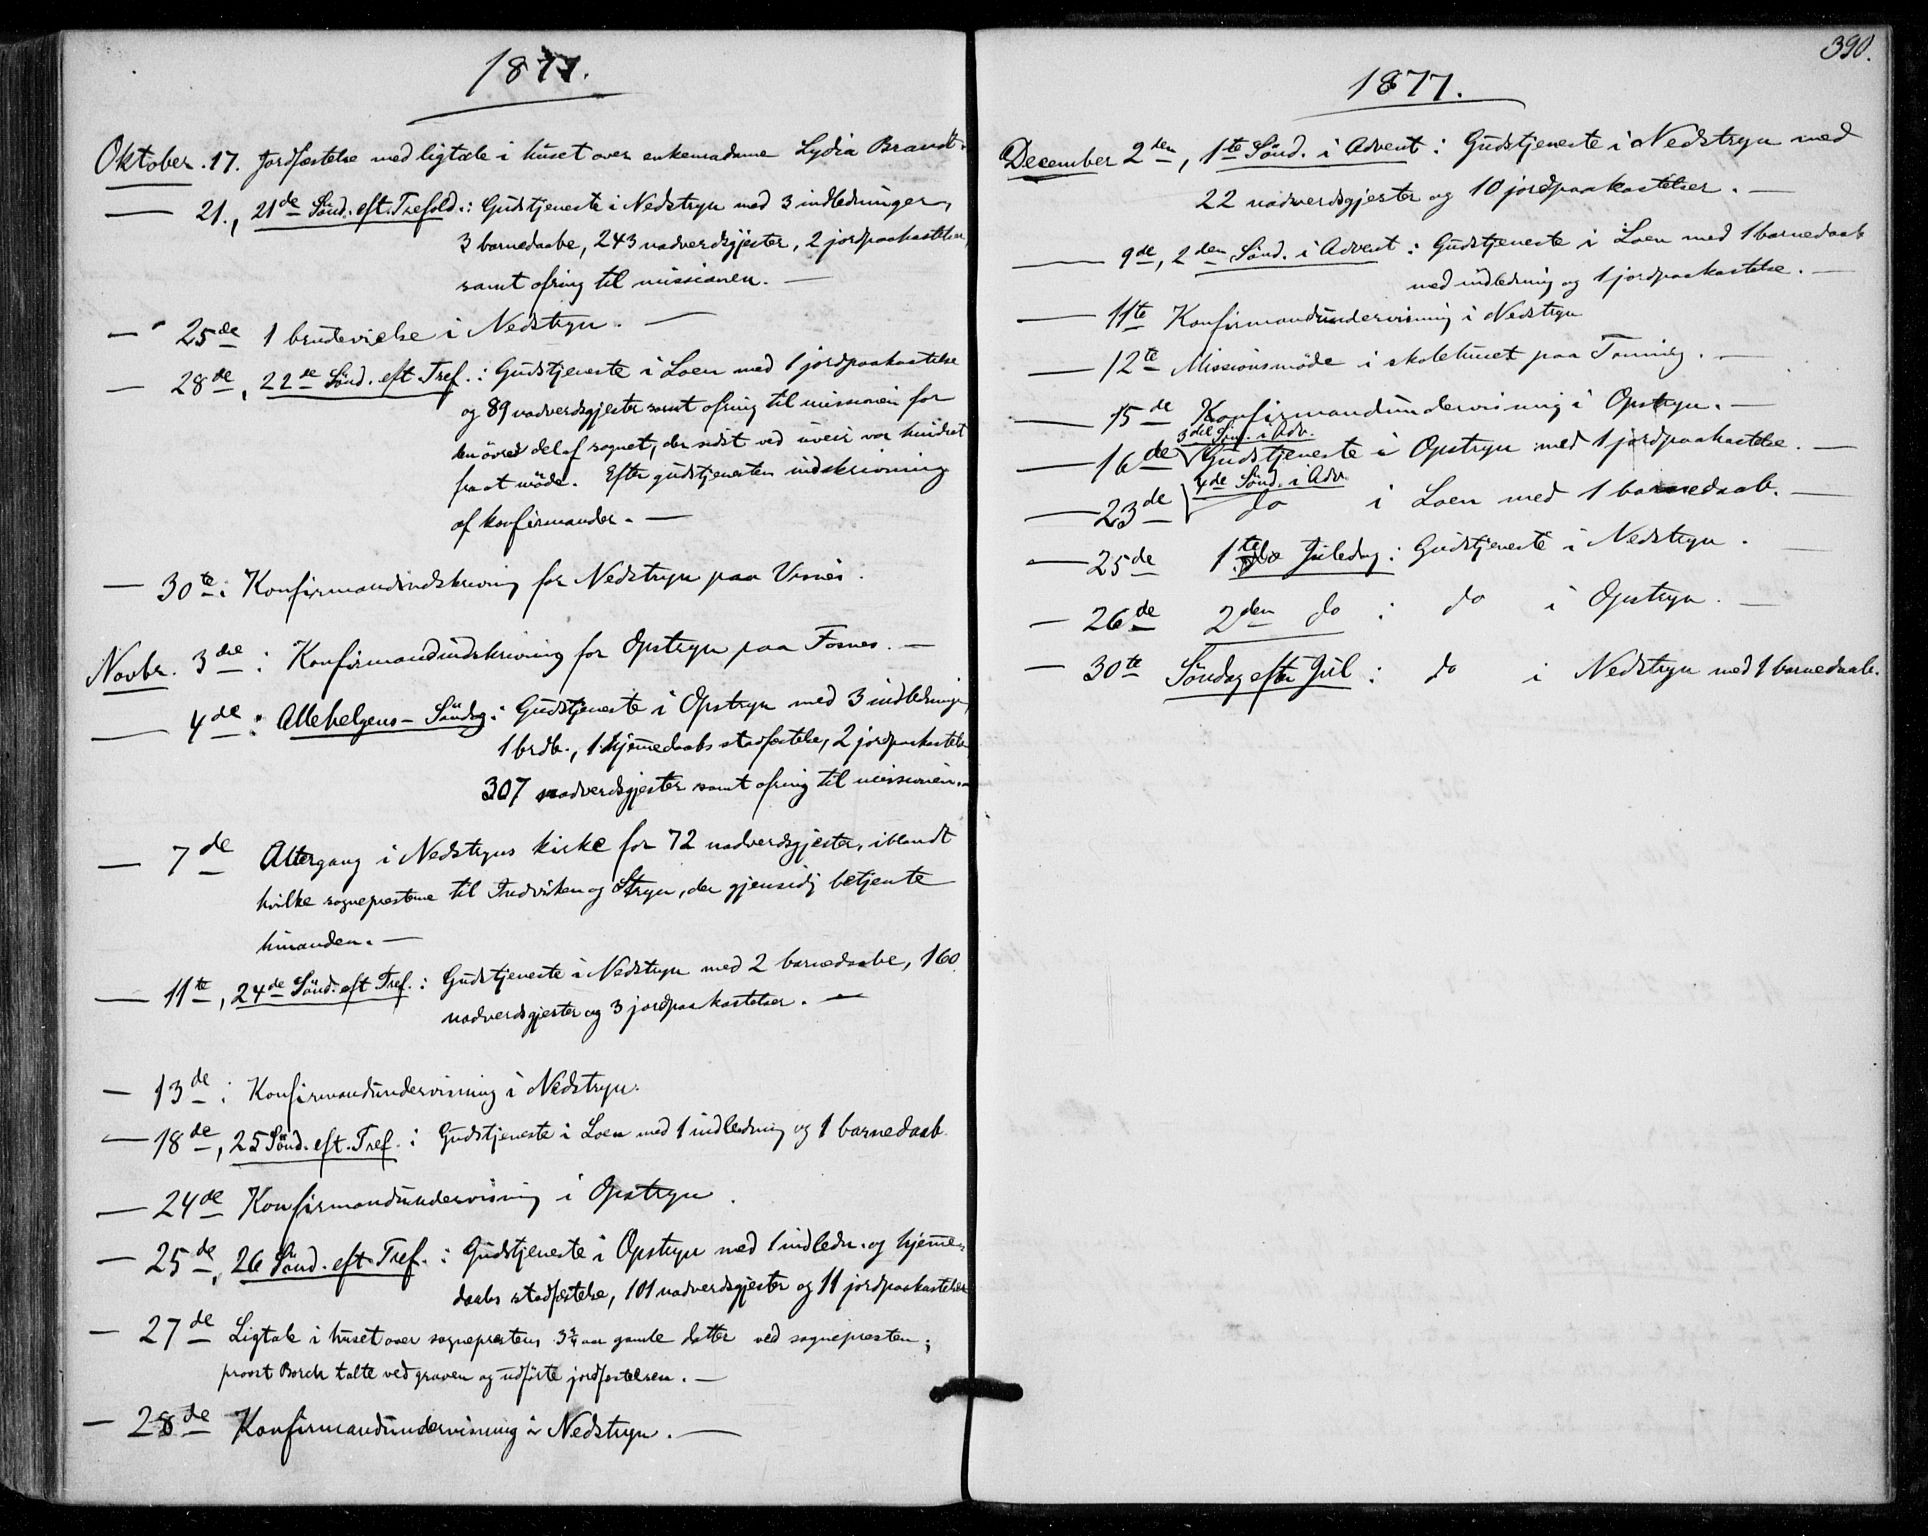 1877.
Oktober. 17. Jordfæstelse med ligtale i huset over enkemadame Lydia Brandt.
— 21., 21de Sönd. eft. Trefold.: Gudstjeneste i Nedstryn med 3 indledninger,
3 barnedaabe, 243 nadverdsgjester, 2 jordpaakastelser,
samt ofring til missionen. —
— 25de 1 brudevielse i Nedstryn. —
— 28de, 22de Sönd. eft. Tref.: Gudstjeneste i Loen med 1 jordpaakastelse
og 89 nadverdsgjester samt ofring til missionen for
den övre del af sognet, der sidst ved uveir var hindret
fra at möde. Efter gudstjenesten indskrivning
af konfirmander. —
— 30te: Konfirmandindskrivning for Nedstryn paa Visnes.
Novbr. 3die: Konfirmandindskrivning for Opstryn paa Fosnes. —
— 4de: Allehelgens-Söndag: Gudstjeneste i Opstryn med 3 indledninger,
1 brdb., 1 hjemmedaabs stadfæstelse, 2 jordpaakastelser
307 nadverdsgjester samt ofring til missionen. —
— 7de Altergang i Nedstryns kirke for 72 nadverdsgjester, iblandt
hvilke sogneprestene til Indviken og Stryn, der gjensidig betjente
hinanden. —
— 11te, 24de Sönd. eft Tref.: Gudstjeneste i Nedstryn med 2 barnedaabe, 160
nadverdsgjester og 3 jordpaakastelser. —
— 13de: Konfirmandundervisning i Nedstryn.
— 18de, 25 Sönd. eft. Tref.: Gudstjeneste i Loen med 1 indledning og 1 barnedaab.
— 24de Konfirmandundervisning i Opstryn.
— 25de, 26 Sönd. eft Tref.: Gudstjeneste i Opstryn med 1 indledn. og hjemme-
daabs stadfæstelse, 101 nadverdsgjester og 11 jordpaakastelser
— 27de Ligtale i huset over sogneprestens 3¾ aar gamle datter ved sognepresten;
provst Borch talte ved graven og udförte jordfæstelsen. —
— 28de Konfirmandundervisning i Nedstryn. —
390.
1877.
December 2den, 1te Sönd. i Advent: Gudstjeneste i Nedstryn med
22 nadverdsgjester og 10 jordpaakastelser. —
— 9de, 2den Sönd. i Advent: Gudstjeneste i Loen med 1 barnedaab
med indledning og 1 jordpaakastelse. —
— 11te Konfirmandundervisning i Nedstryn
— 12te Missionsmöde i skolehuset paa Tonning. —
— 15de Konfirmandundervisning i Opstryn. —
3die Sön. i Adv.
— 16de Gudstjeneste i Opstryn med 1 jordpaakastelse. —
4de Sönd. i Adv.
— 23de do i Loen med 1 barnedaab. —
— 25de 1te Juledag: Gudstjeneste i Nedstryn. —
— 26de 2den do : do i Opstryn. —
— 30te Söndag efter Jul: do i Nedstryn med 1 barnedaab.